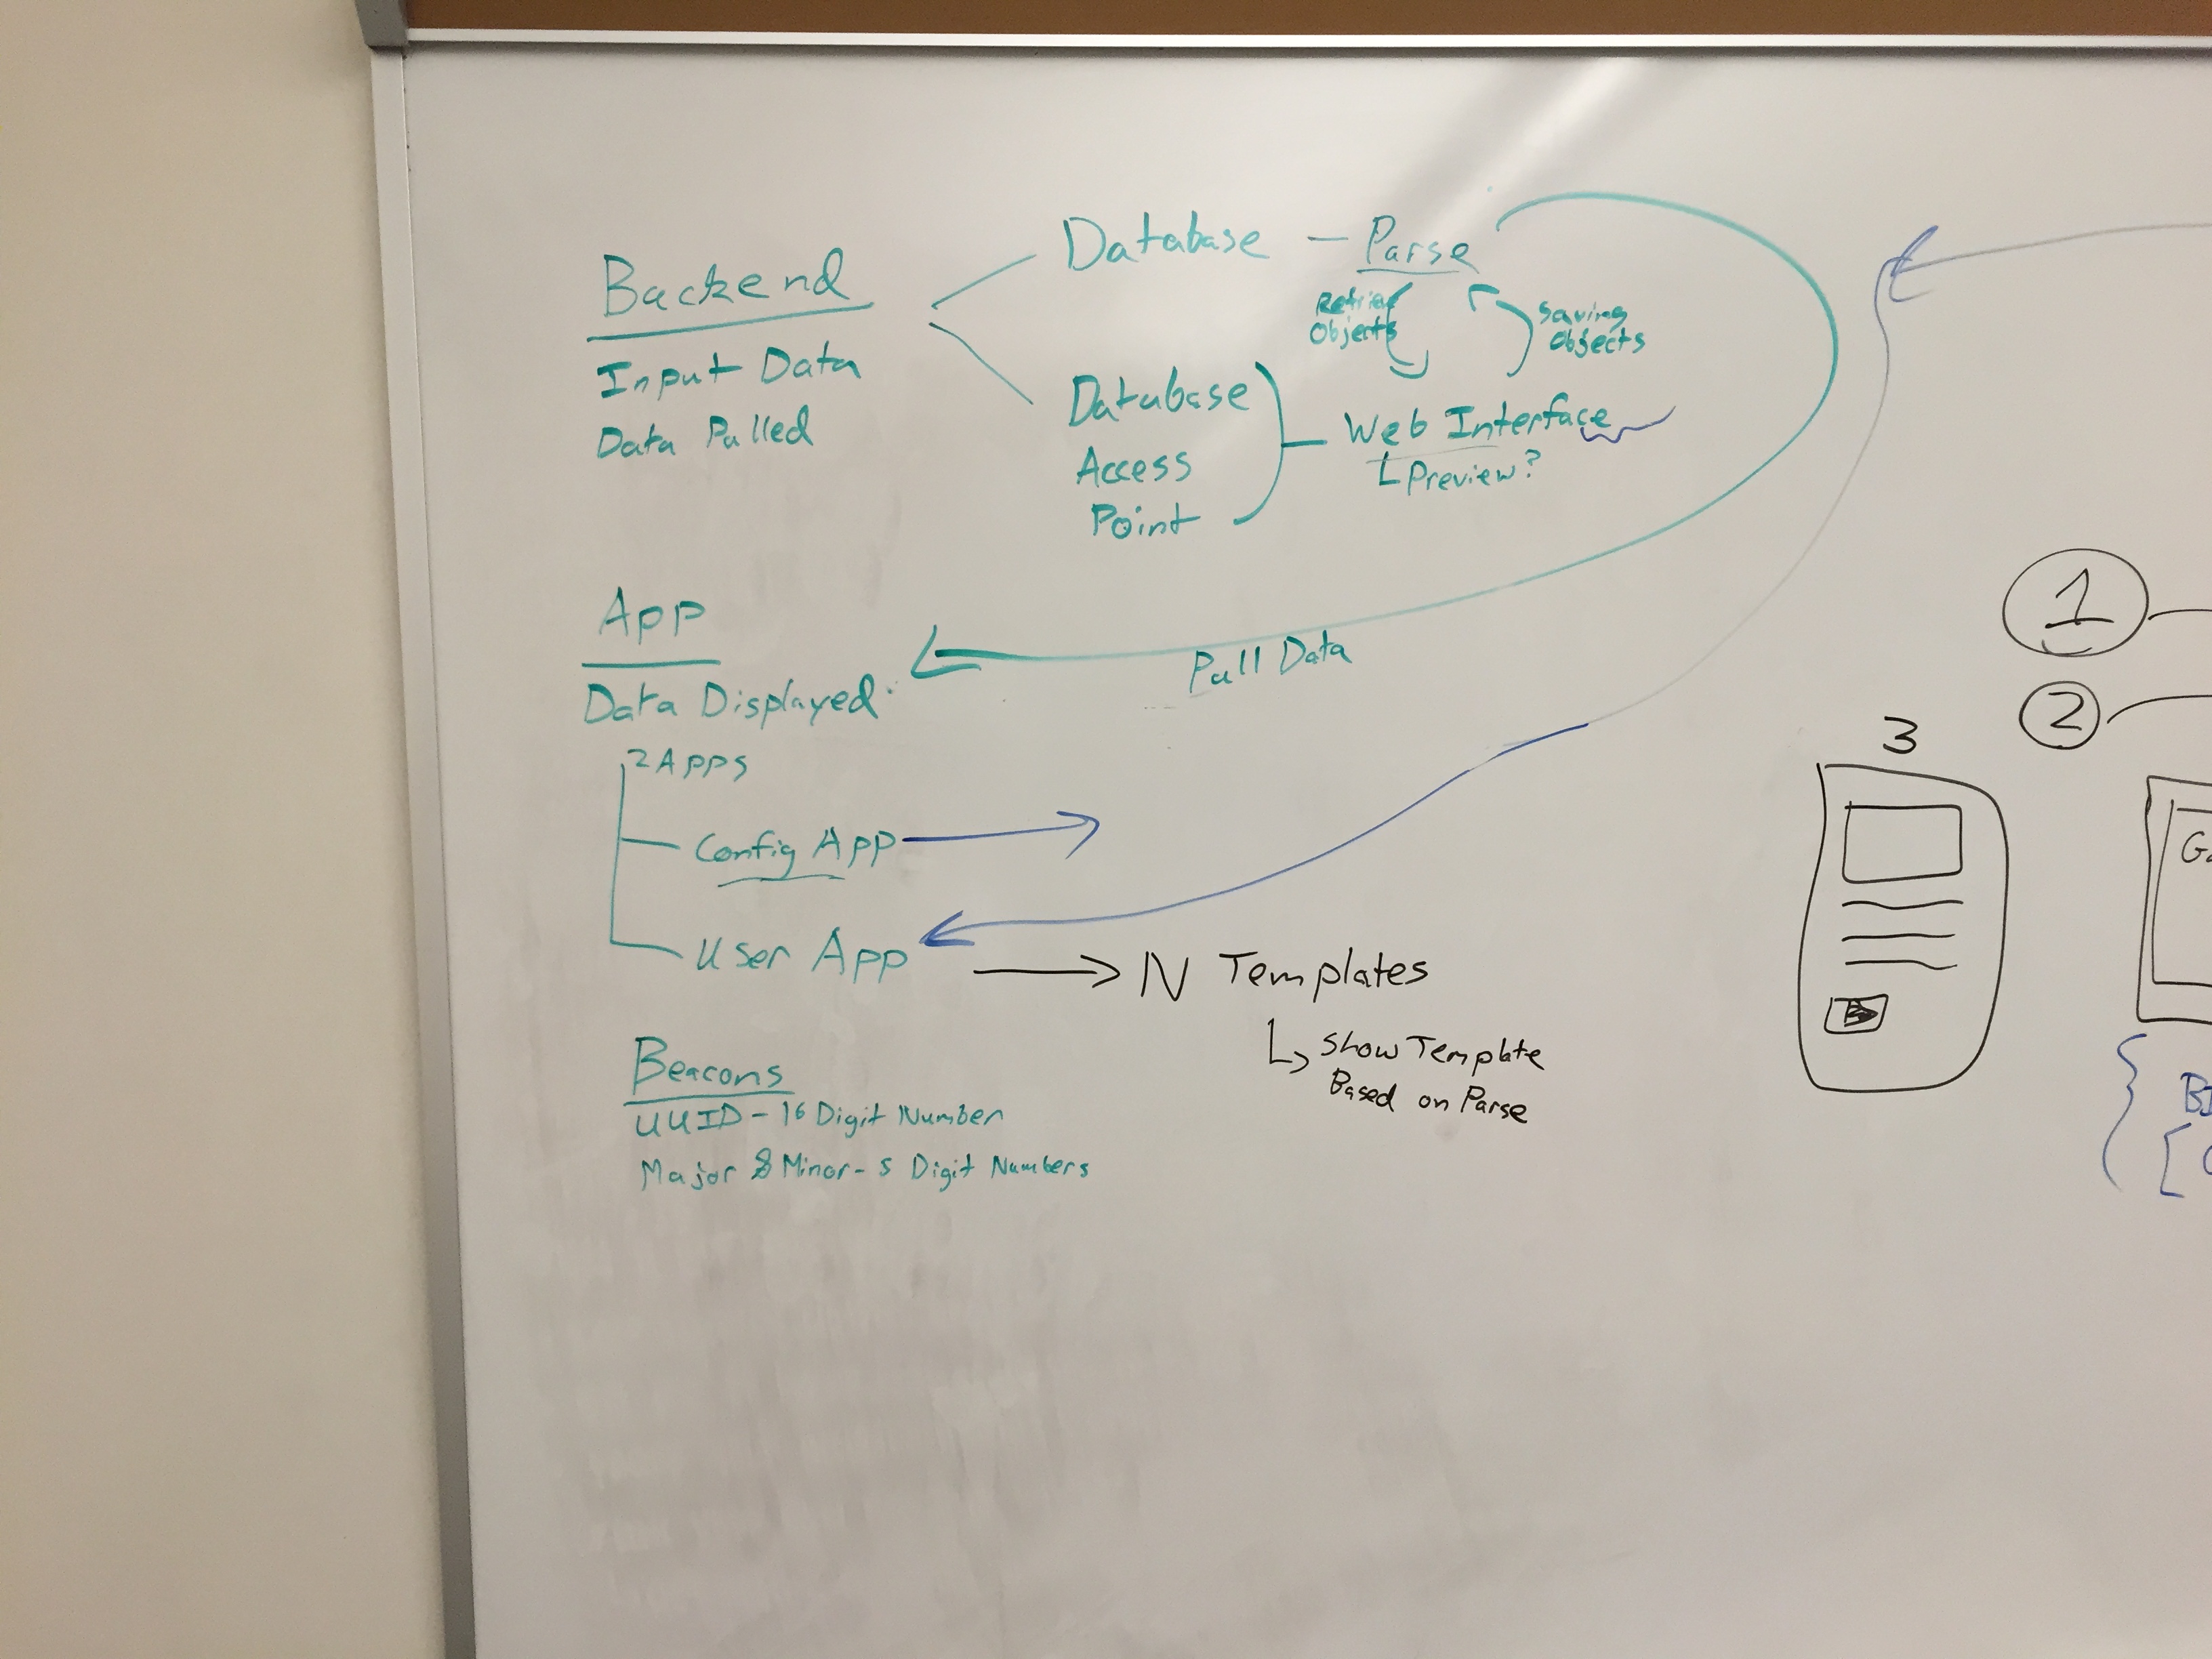 Backend
Input Data
Data Pulled
Database — Parse
Retrieve Objects
Saving Objects
Database
Access
Point
Web Interface
Preview?
App
Data Displayed
Pull Data
2 Apps
Config App
User App
N Templates
Show Template
Based on Parse
Beacons
UUID - 16 Digit Number
Major & Minor - 5 Digit Numbers
1
2
3